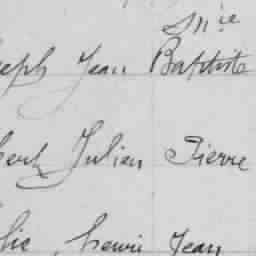 Mie
seph Jean Baptiste
bert Julien Pierre
lie, henri Jean